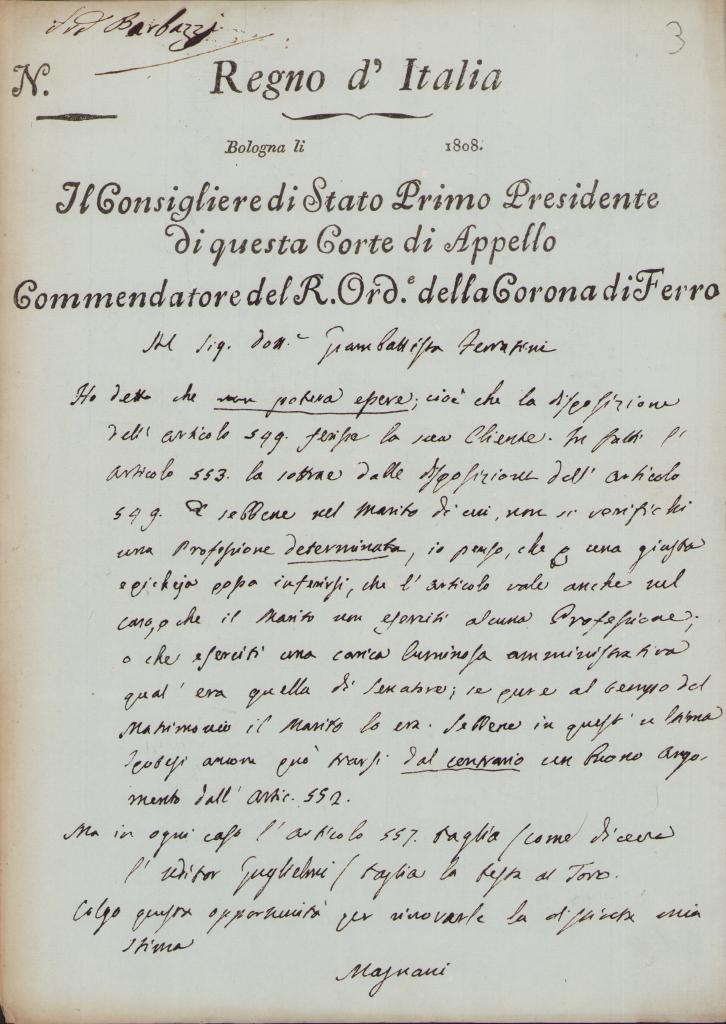 Barbazzi
3
N.
Regno d' Italia
Bologna li 1808.
Il Consigliere di Stato Primo Presidente
di questa Corte di Appello
Commendatore del R. Ord.e della Corona di Ferro
Al Sig. Dott.r Giambattista Ferratini
Ho detto che non poteva essere; cioè che la disposizione
dell' articolo 549. ferisse la sua Cliente. In fatti l'
articolo 553. la sottrae dalle disposizioni dell' articolo
549. E sebbene nel Marito di cui, non si verifichi
una Professione determinata, io penso, che una giusta
epicheja possa inferirsi, che l' articolo vale anche nel
caso, o che il Marito non eserciti alcuna Professione;
o che eserciti una carica luminosa amministrativa
qual' era quella di Senatore; se pure al tempo del
Matrimonio il Marito lo era. Sebbene in quest' ultima
Ipotesi ancora può trarsi dal contrario un buono Argo-
mento dall' Artic. 552.
Ma in ogni caso l' articolo 557. taglia / come diceva
l' Uditor Guglielmi / taglia la testa al Toro.
Colgo questa opportunità per rinovarle la distinta mia
stima
Magnani